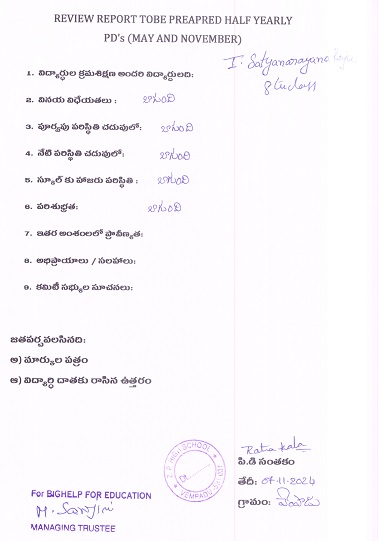 REVIEW REPORT TOBE PREAPRED HALF YEARLY
PD's (MAY AND NOVEMBER)
I. Satyanarayana
8th class
1. విద్యార్థుల క్రమశిక్షణ అందరి విద్యార్థులది:
2. వినయ విధేయతలు : బాగుంది
3. పూర్వపు పరిస్థితి చదువులో: బాగుంది
4. నేటి పరిస్థితి చదువులో: బాగుంది
5. స్కూల్ కు హాజరు పరిస్థితి : బాగుంది
6. పరిశుభ్రత: బాగుంది
7. ఇతర అంశంలలో ప్రావీణ్యత:
8. అభిప్రాయాలు / సలహాలు:
9. కమిటీ సభ్యుల సూచనలు:
జతపర్చవలసినది:
అ) మార్కుల పత్రం
ఆ) విద్యార్థి దాతకు రాసిన ఉత్తరం
Z.P. HIGH SCHOOL
VEMPADU
Ratna kala
పి.డి సంతకం
తేదీ: 04-11-2024
గ్రామం: వేంపాడు
For BIGHELP FOR EDUCATION
MANAGING TRUSTEE